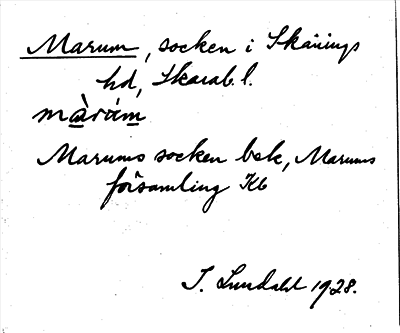 Marum, socken i Skånings
hd, Skarab. l.
màrúm
Marums socken bek, Marums
församling Kb
I. Lundahl 1928.